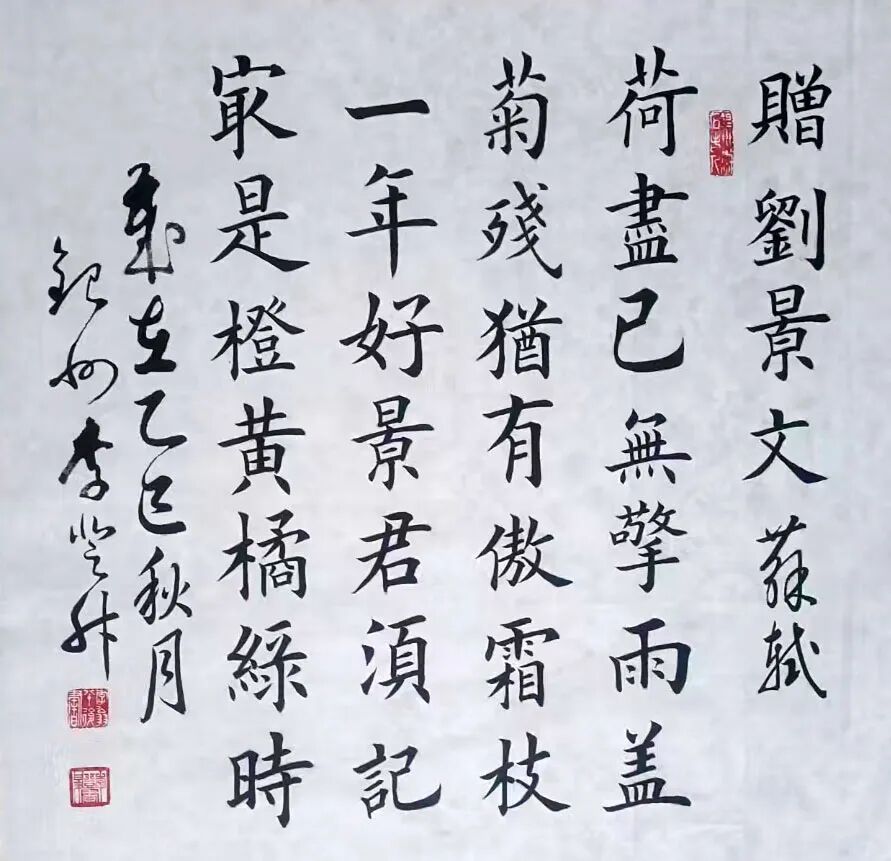 贈劉景文蘇軾
荷盡已無擎雨盖
菊殘猶有傲霜枝
一年好景君須記
冣是橙黃橘綠時
歲在乙巳秋月
李登